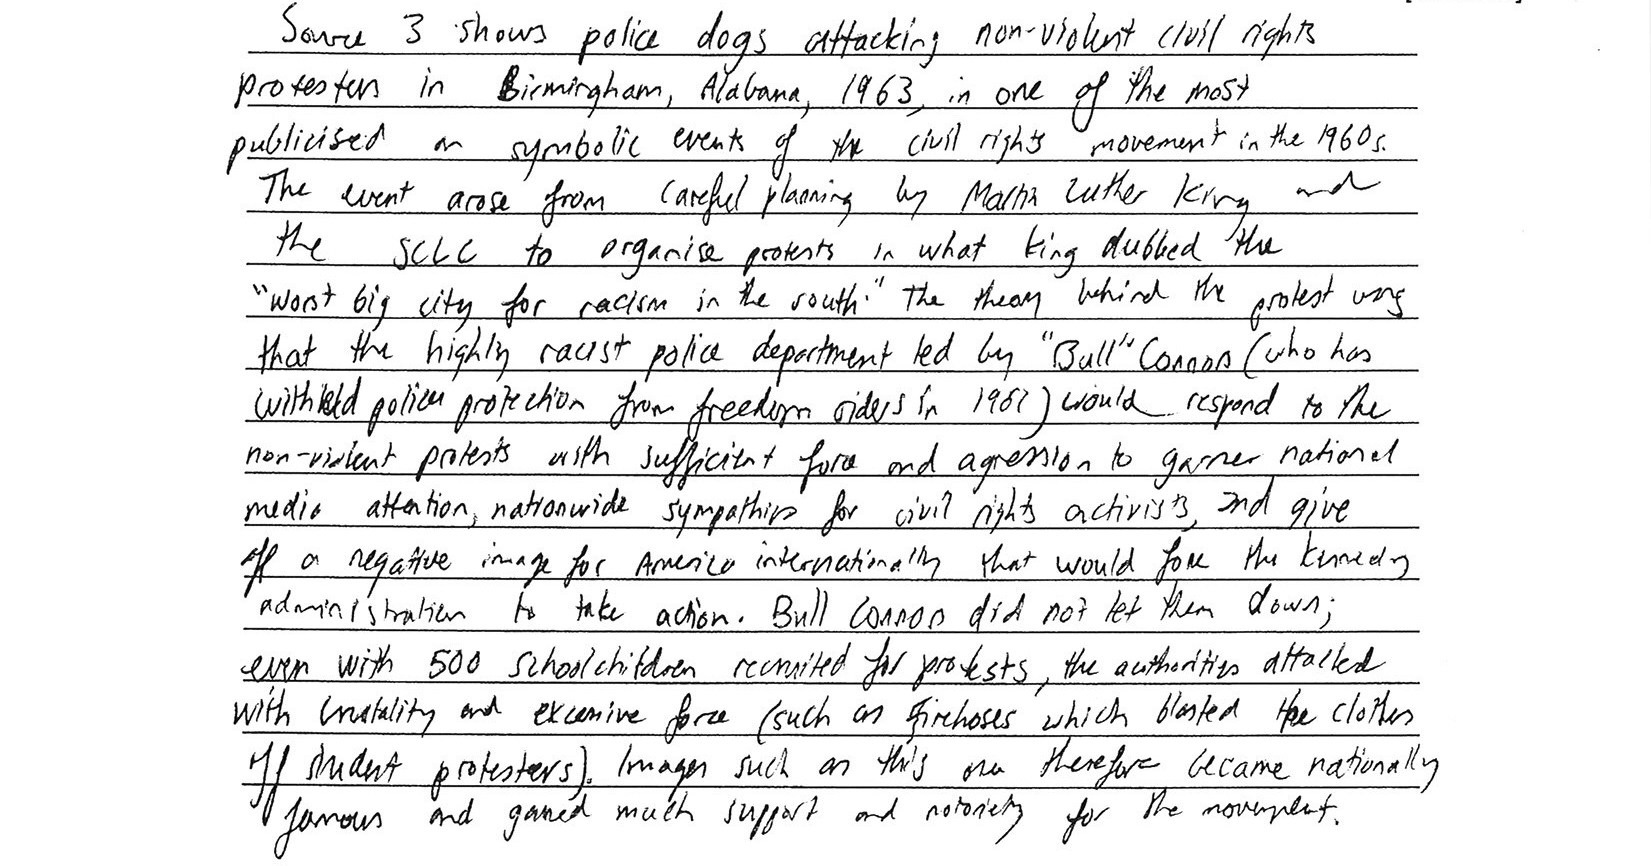 Source 3 shows police dogs attacking non-violent civil rights
protesters in Birmingham, Alabama, 1963, in one of the most
publicised an symbolic events of the civil rights movement in the 1960s.
The event arose from careful planning by Martin Luther King and
the SCLC to organise protests in what King dubbed the
"worst big city for racism in the south." The theory behind the protest was
that the highly racist police department led by "Bull" Connor (who has
withheld police protection from freedom riders in 1961) would respond to the
non-violent protests with sufficient force and agression to garner national
media attention, nationwide sympathies for civil rights activists, and give
off a negative image for America internationally that would force the Kennedy
administration to take action. Bull Connor did not let them down;
even with 500 schoolchildren recruited for protests, the authorities attacked
with brutality and excessive force (such as firehoses which blasted the clothes
off student protesters). Images such as this one therefore became nationally
famous and gained much support and notoriety for the movement.